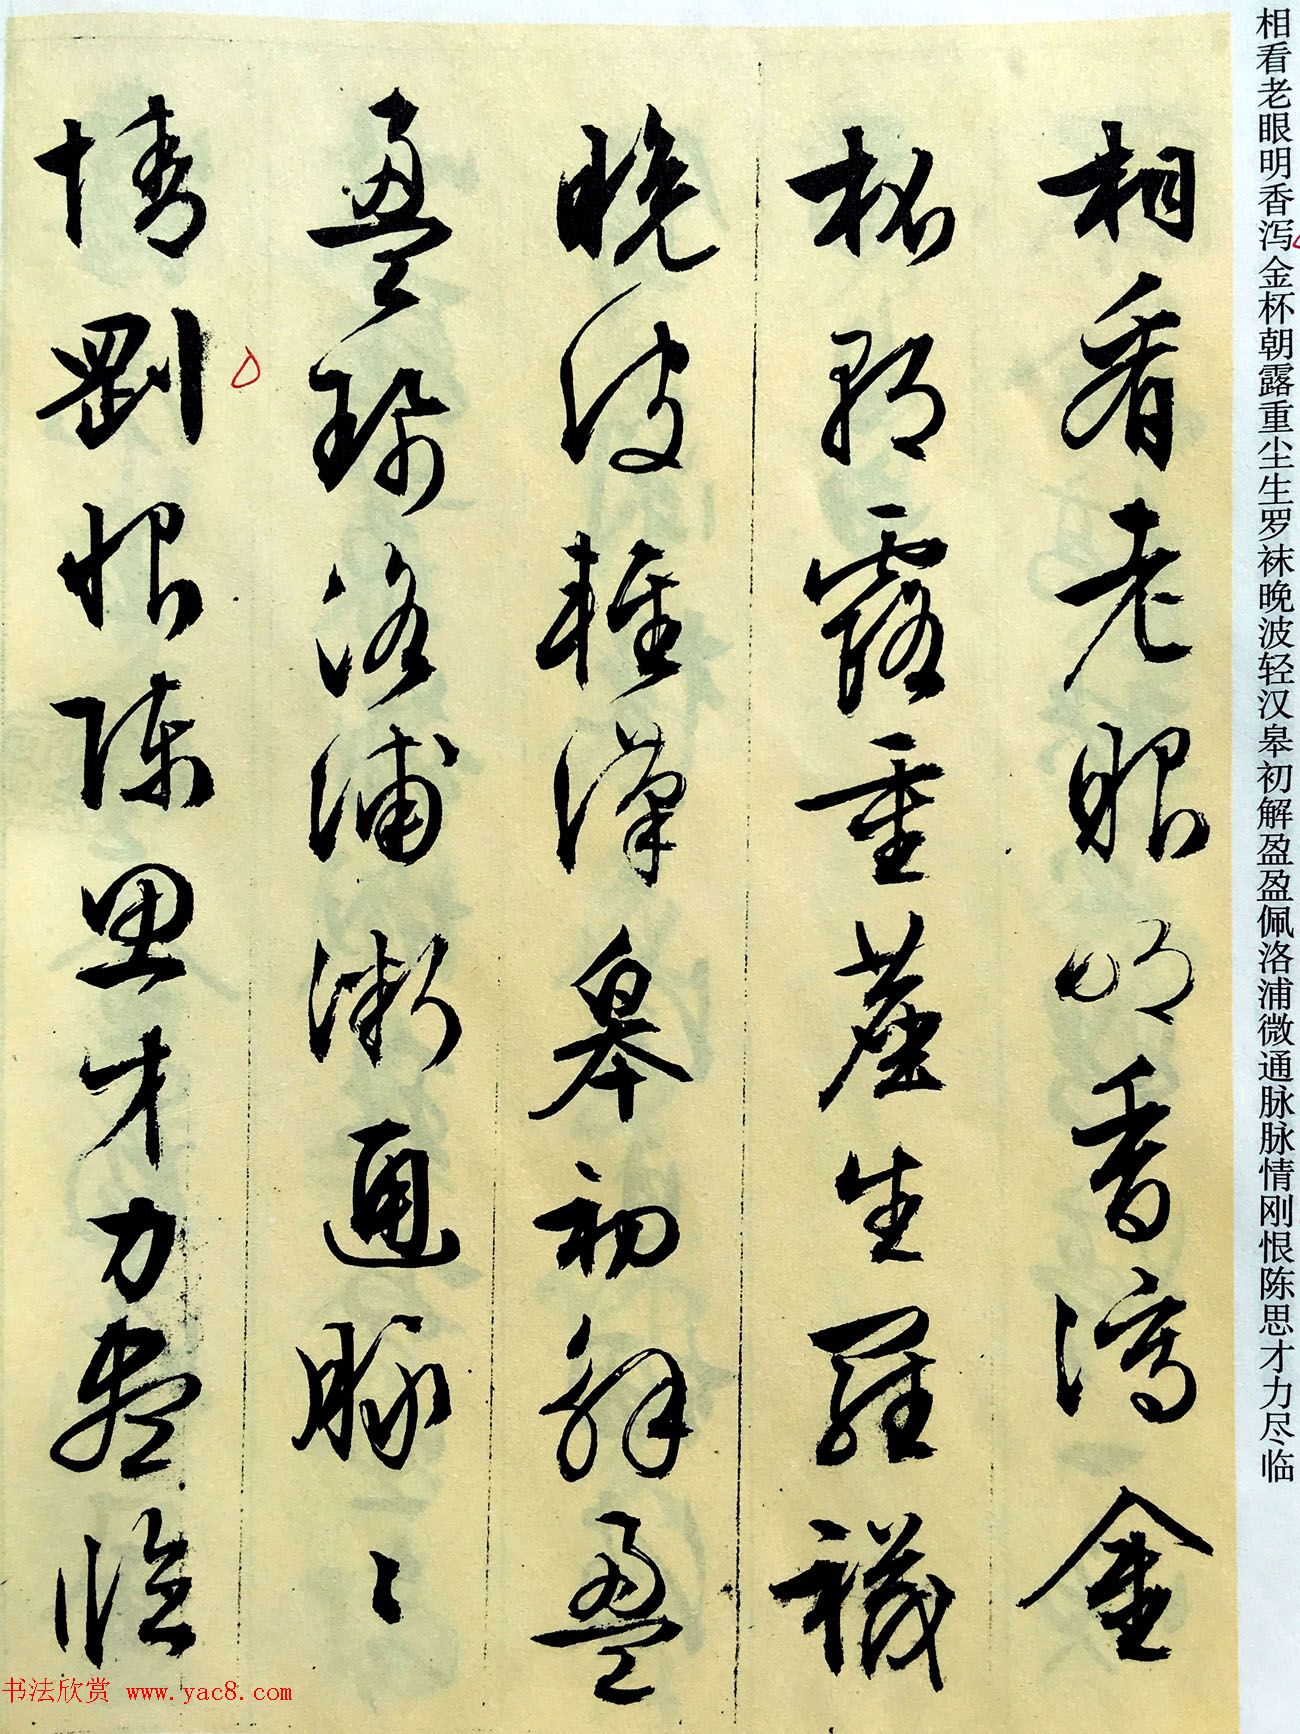 相看老眼明香泻金杯朝露重尘生罗袜晚波轻汉皋初解盈盈佩洛浦微通脉脉情刚恨陈思才力尽临
相看老眼明香瀉金
杯朝露重塵生羅襪
晚波輕漢皋初解盈
盈珮洛浦微通脉〻
情剛恨陳思才力盡臨
书法欣赏 www.yac8.com